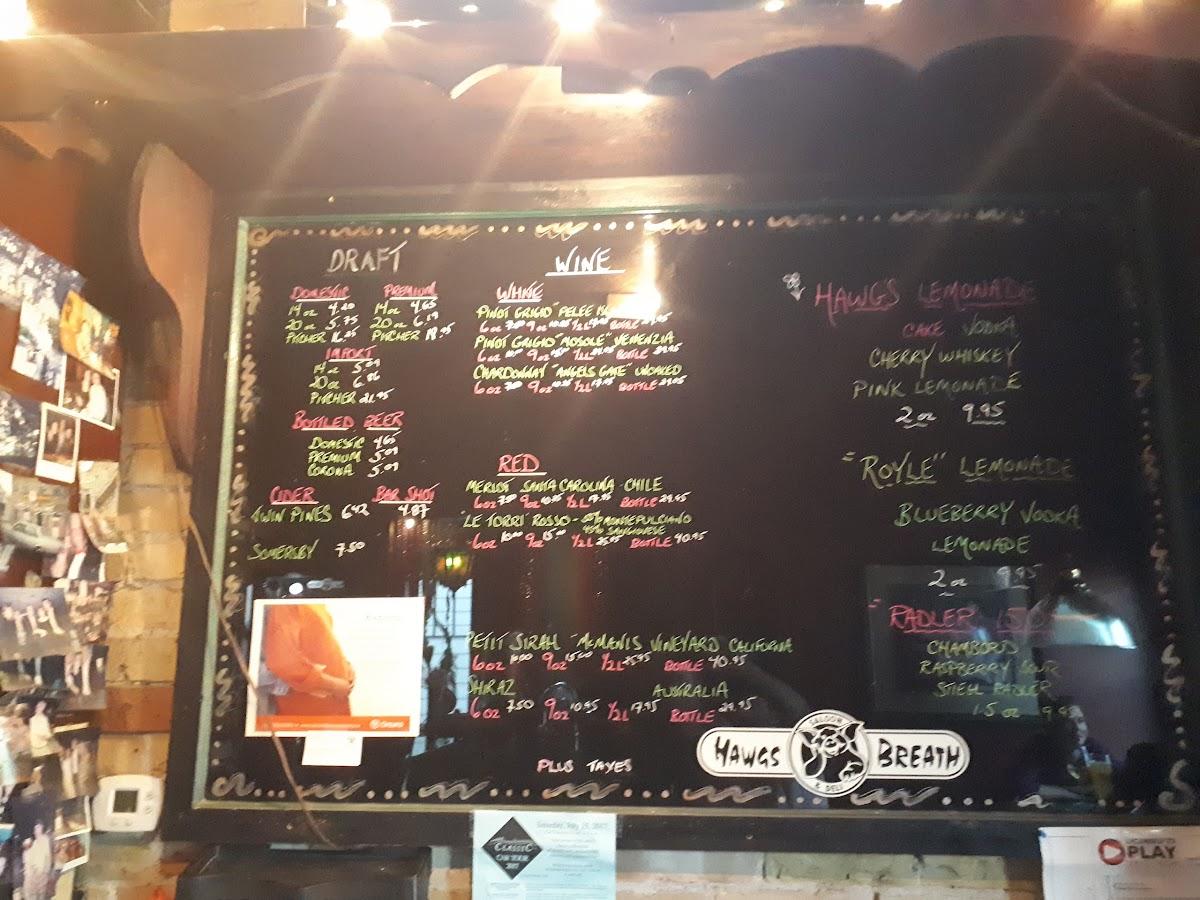 DRAFT
DOMESTIC
14 oz 4.20
20 oz 5.75
PITCHER
PREMIUM
14 oz 4.65
20 oz 6.19
PITCHER 18.95
IMPORT
14 oz 5.09
20 oz
PITCHER 21.95
BOTTLED BEER
DOMESTIC 4.65
PREMIUM 5.09
CORONA 5.09
CIDER
TWIN PINES 6.42
SOMERSBY 7.50
BAR SHOT
4.87
WINE
WHITE
PINOT GRIGIO "PELEE
6oz 7.50 9oz 10.95 1/2L 17.95 BOTTLE
PINOT GRIGIO "MOSOLE" VENENZIA
6oz 9oz 1/2L BOTTLE
CHARDONNAY "ANGELS GATE" UNOAKED
6oz 7.50 9oz 10.95 1/2L 17.95 BOTTLE 29.95
RED
MERLOT SANTA CAROLINA - CHILE
6oz 7.50 9oz 10.95 1/2L 17.95 BOTTLE 29.95
"LE TORRI" ROSSO - MONTEPULCIANO
SANGIOVESE
6oz 10.00 9oz 15.00 1/2L 25.95 BOTTLE 40.95
PETIT SIRAH "McMANIS VINEYARD CALIFORNIA
6oz 10.00 9oz 15.00 1/2L 25.95 BOTTLE 40.95
SHIRAZ AUSTRALIA
6oz 7.50 9oz 10.95 1/2L 17.95 BOTTLE 29.95
PLUS TAXES
HAWGS LEMONADE
CAKE VODKA
CHERRY WHISKEY
PINK LEMONADE
2 oz 9.95
"ROYLE" LEMONADE
BLUEBERRY VODKA
LEMONADE
2 oz 9.95
"RADLER
CHAMBORD
RASPBERRY SOUR
STIEGL RADLER
1.5 oz
HAWGS BREATH
SALOON
& DELI
CLASSIC
CAR TOUR
2017
PLAY